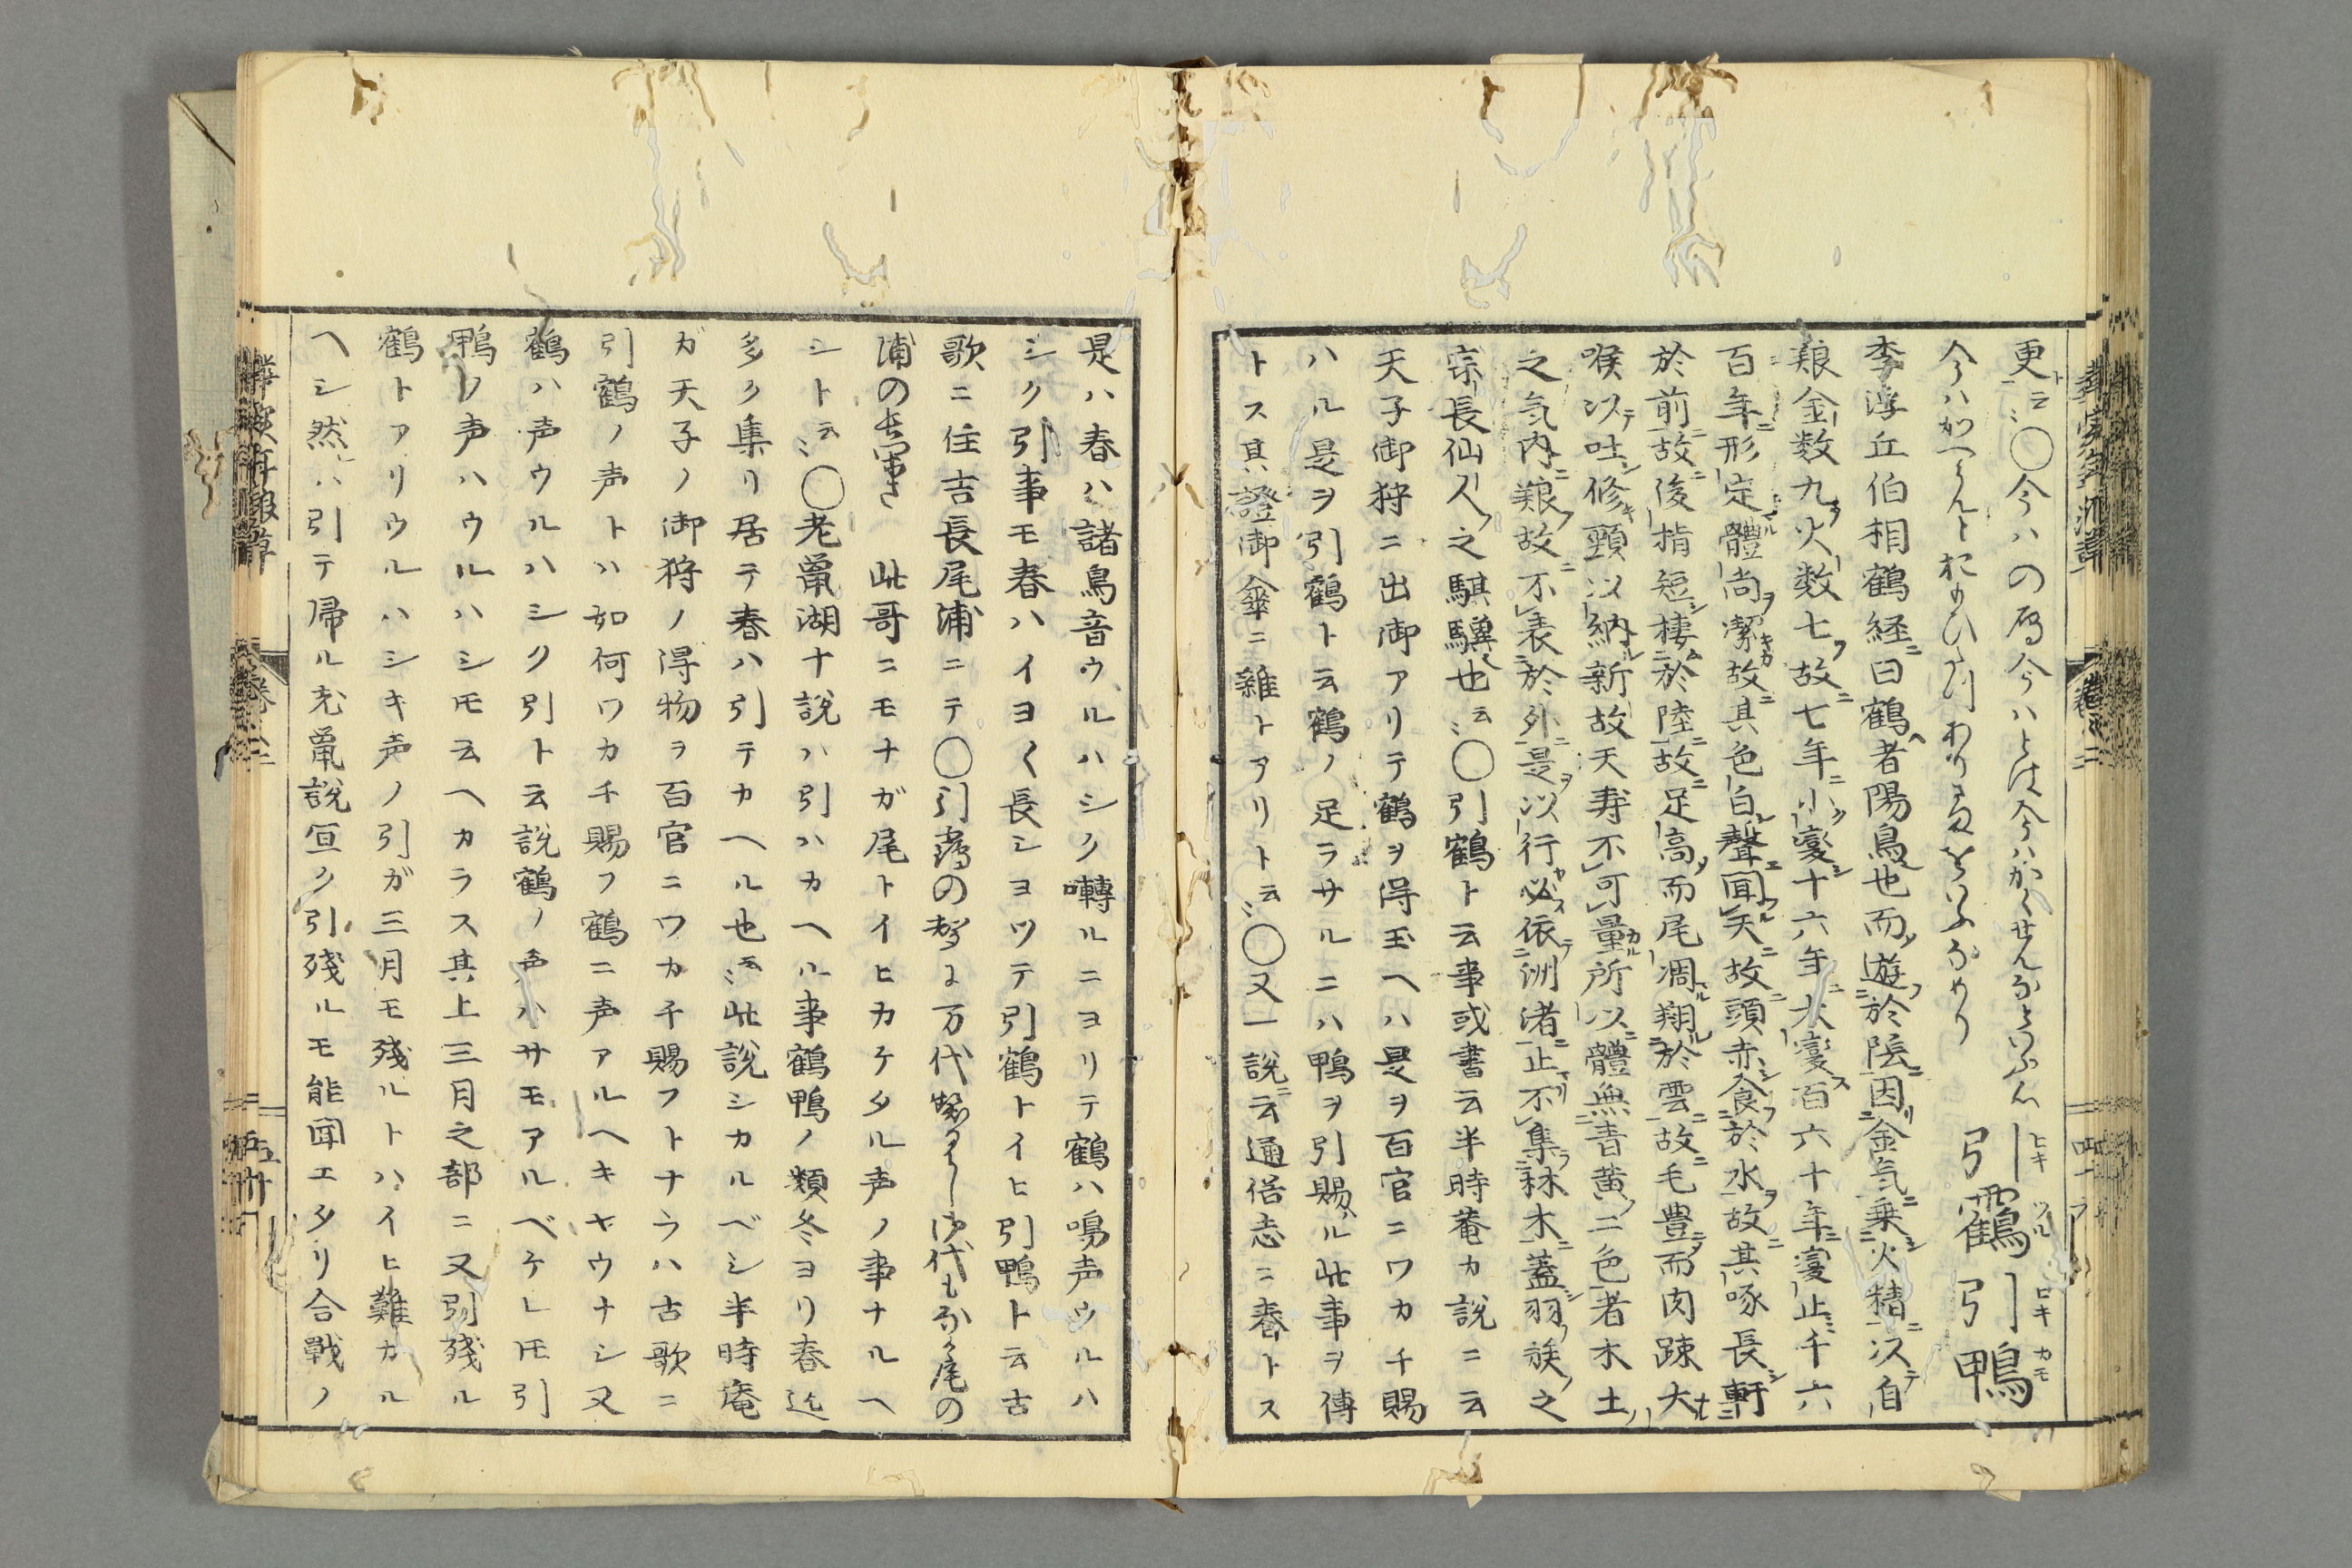 更ニ云〻○今ハの鳫今ハとは今ハかへらんなといふ心
今ハかへらんとおもひ
引靏 引鴨
ヒキツル ヒキカモ
李浮丘伯相鶴経曰鶴者陽鳥也而遊於陰因金気乗火精以自
粮金数九火数七故七年小変十六年大変百六十年変止千六
百年形定體尚潔故其色白聲聞天故頭赤食於水故其啄長軒
於前故後指短棲於陸故足高而尾凋翔於雲故毛豊而肉疎大
喉以吐修頸以納新故天寿不可量所以體無青黄二色者木土
之気内粮故不表於外是以行必依洲渚止不集林木蓋羽族之
宗長仙人之騏驥也云〻○引鶴ト云事或書云半時菴カ説ニ云
天子御狩ニ出御アリテ鶴ヲ得玉ヘハ是ヲ百官ニワカチ賜
ハル是ヲ引鶴ト云鶴ノ足ラサルニハ鴨ヲ引賜ル此事ヲ傳
トス其證御傘ニ雜トアリト云〻○又一説ニ云通俗志ニ春トス
是ハ春ハ諸鳥音ウルハシク囀ルニヨリテ鶴ハ鳴声ウルハ
シク引事モ春ハイヨ〱長シヨツテ引鶴トイヒ引鴨ト云古
歌ニ住吉長尾浦ニテ○引靏の聲は万代 御代もなか尾の
浦の 此哥ニモナガ尾トイヒカケタル声ノ事ナルヘ
シト云〻○老鼠湖十説ハ引ハカヘル事鶴鴨ノ類冬ヨリ春迄
多ク集リ居テ春ハ引テカヘル也云〻此説シカルベシ半時庵
ガ天子ノ御狩ノ得物ヲ百官ニワカチ賜フトナラハ古歌ニ
引鶴ノ声トハ如何ワカチ賜フ鶴ニ声アルヘキヤウナシ又
鶴ハ声ウルハシク引ト云説鶴ノ声ハサモアルベケレ𪜈引
鴨ノ声ハウルハシ𪜈云ヘカラス其上三月之部ニ又引残ル
鶴トアリウルハシキ声ノ引ガ三月モ残ルトハイヒ難カル
ヘシ然レハ引テ帰ル老鼠説宜ク引残ルモ能聞エタリ合戰ノ